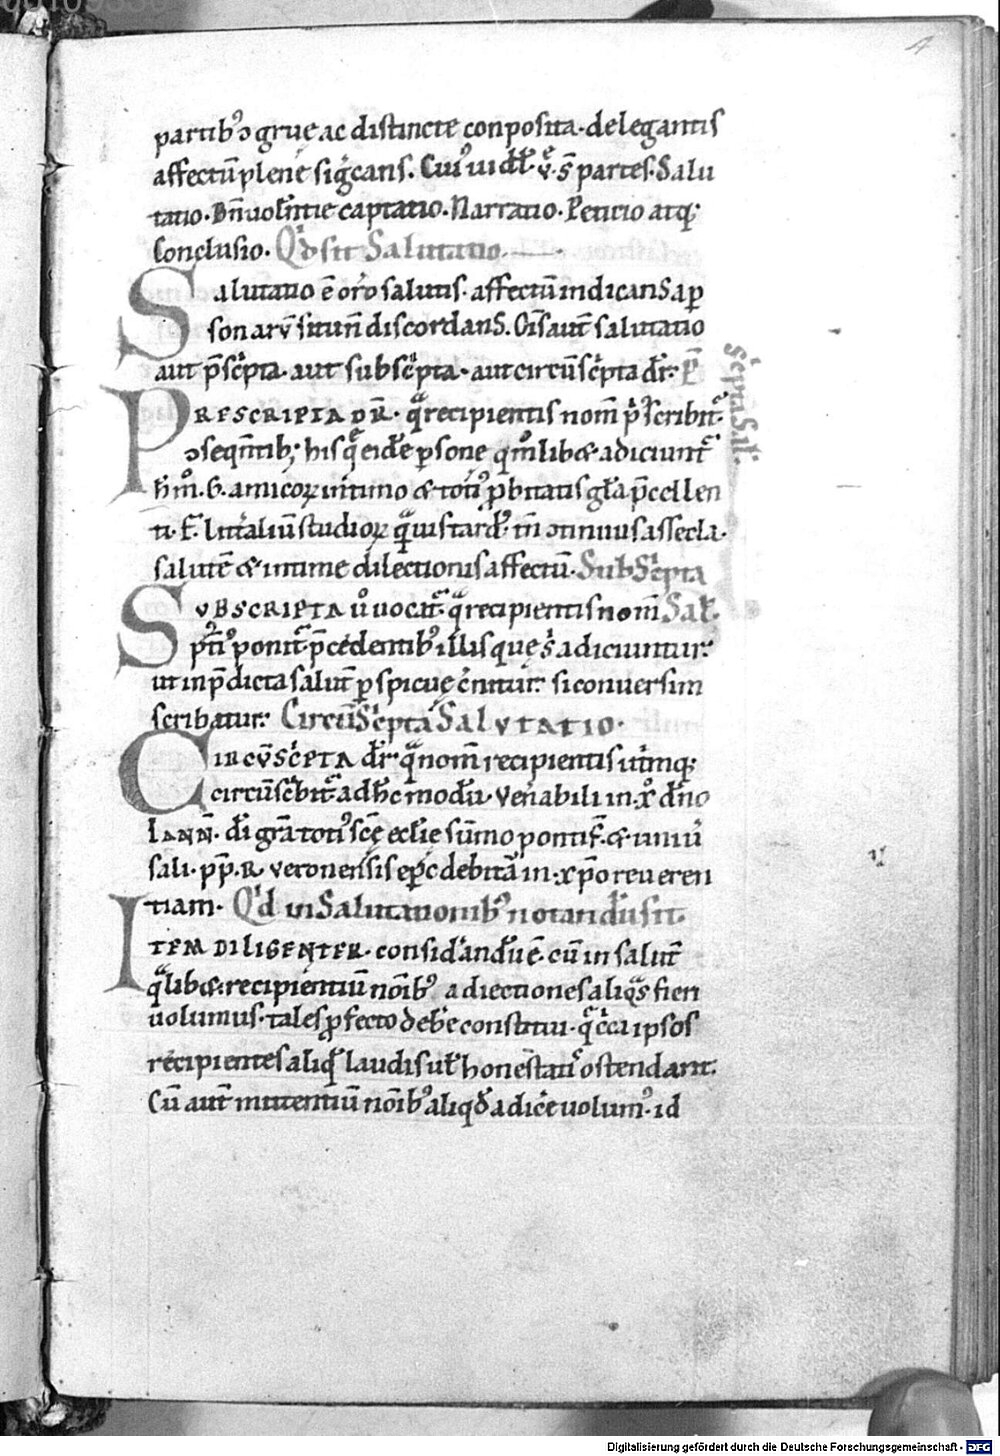 4
partibꝰ ɔgrue ac distincte conposita· delegantis
affectū plene sig̅cans. Cuiꝰ uidꝉꝉ· v̊· s̅ partes. Salu
tatio· Bn̄uolentie captatio. Narratio. Peticio atq;
Conclusio. Qd sit Salutatio.
Salutatio ē orō salutis· affectū indicans a p̱
sonarū situ n̄ discordans. Oīs aut̄ salutatio
aut p̄sc̍pta· aut subsc̍pta· aut circūsc̍pta dr̄. P̄
sc̍pta Sal̄.
PRESCRIPTA DR̄· qͣ recipientis nom̄ p̍scribit᷑
ɔseqn̄tib; hisq̄ eidē p̱sone qm̊libꝫ adiciunt᷑
h̄ m̊. G. amicoꝝ intimo & totiꝰ ꝓbitatis gr̄a p̄cellen
ti· F. litt̄aliū studioꝝ qͣuis tardꝰ· tn̄ ɔtinuus assecla·
salutē & intime dilectionis affectū. Subsc̍pta
Sal̄.
SVBSCRIPTA u̅ uocat᷑· qͣ recipientis nom̄
p̍tiꝰ ponit᷑ p̄cedentibꝰ illis que s̍ adiciuntur:
ut in p̄dicta salut̄ p̱spicue c̄nitur: si conuersim
scribatur: Circūsc̍pta SalVTATIO·
CIRCV̄SC̍PTA dr̄· qͣ nom̄ recipientis utimq;
circūsc̍bit᷑ ad hc̄ modū· Ven̄abili in· xp̊ dn̄o
IANN̄· dī gr̄a totiꝰ sc̄e ecclīe sūmo pontif̄· & uniū
sali· pp̄· R· veronensis epc̄ debitā in· xp̄o reueren
tiam· Qd in Salutationibꝰ notandū sit.
ITEM DILIGENTER· consid̄andū ē· cū in salut̄
qͣlibꝫ· recipientiū noībꝰ adiectiones aliqͣs fieri
uolumus· tales ꝓfecto debe̅ constitui· q̄ c̄ca ipsos
recipientes aliqͥd laudis ul̄ honestatis ostendant:
Cū aut̄ mittentiū noībꝰ aliqͥd adic̄e uolumꝰ· id
Digitalisierung gefördert durch die Deutsche Forschungsgemeinschaft - DFG